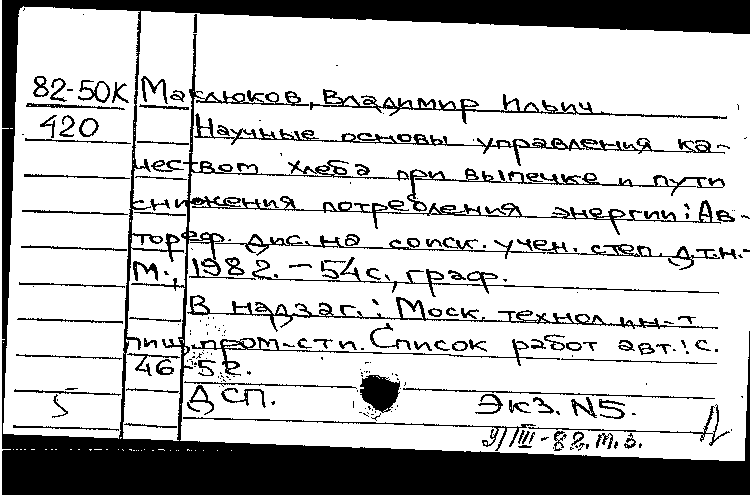 82-50К Маклюков, Владимир Ильич
420 Научные основы управления ка-
чеством хлеба при выпечке и пути
снижения потребления энергии: Ав-
тореф. дис. на соиск. учен. степ. д.т.н.-
М., 1982. - 54 с., граф.
В надзаг.: Моск. технол. ин-т
пищ. пром-сти. Список работ авт.: с.
46-52.
5 ДСП. Экз. N5.
9/III-82. т.з.